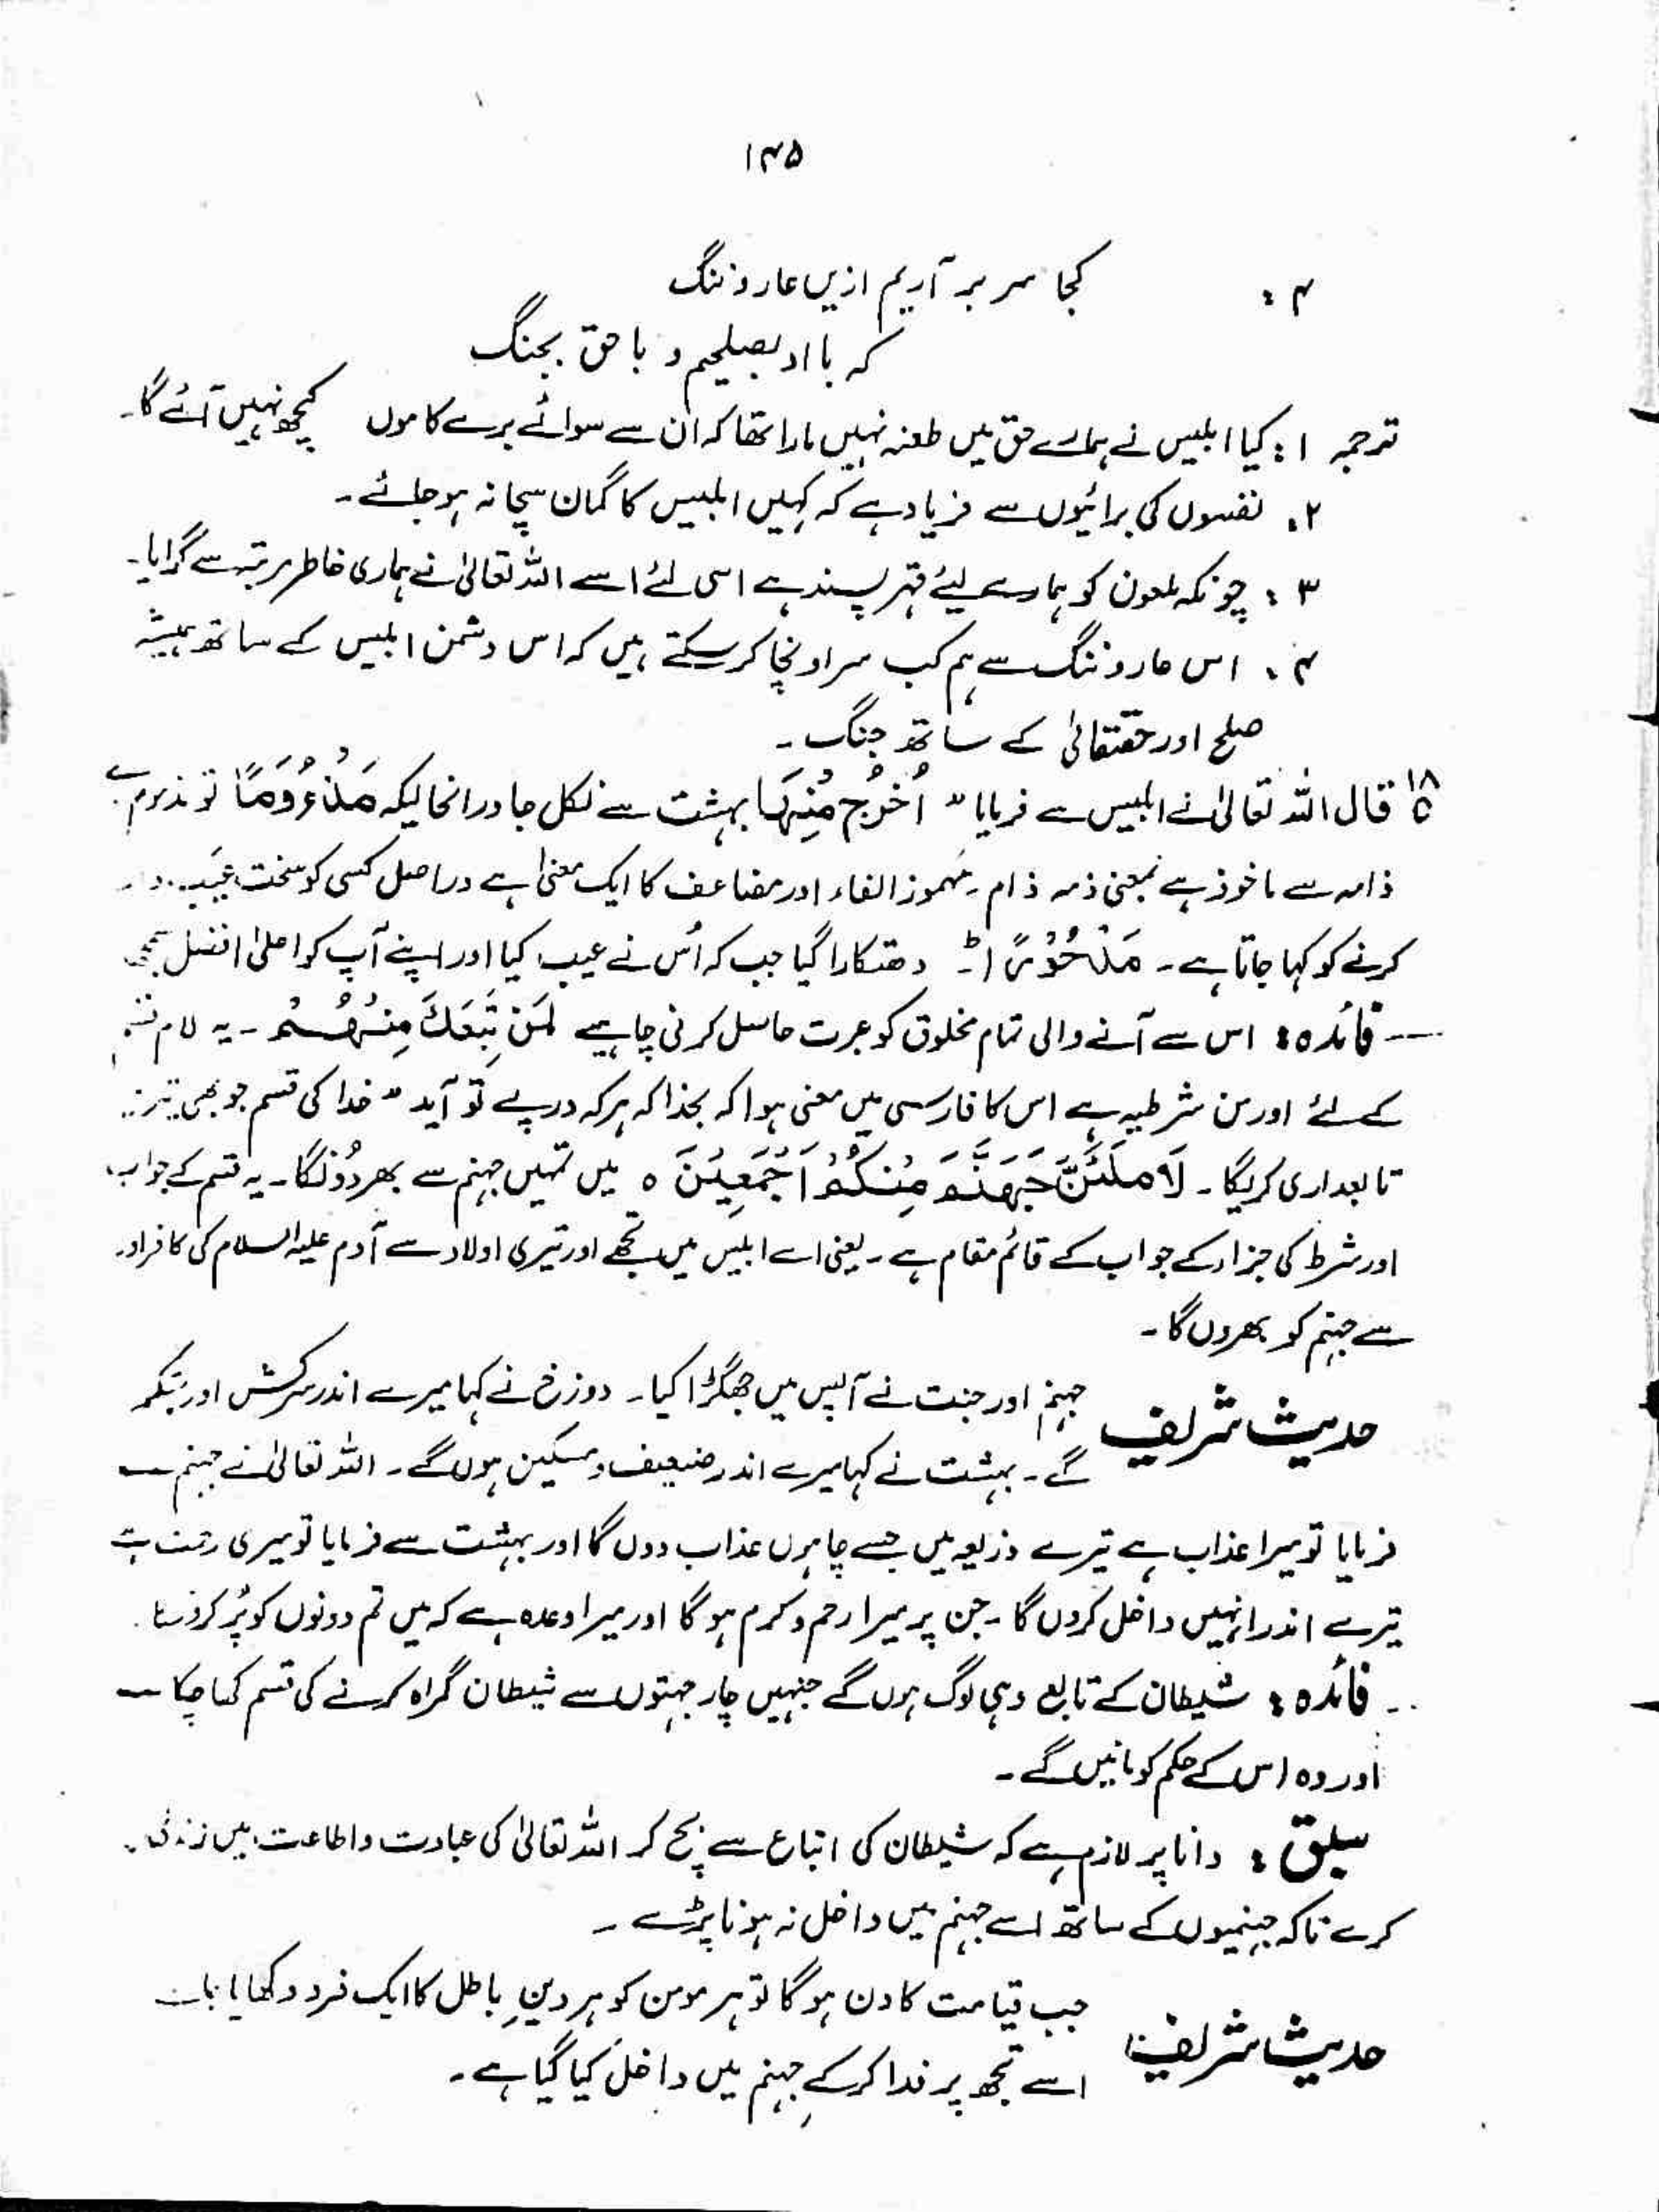 ۱۴۵
۴: کجا سر بر آریم ازیں عار و ننگ
کہ با او بصلحیم و با حق بجنگ
ترجمہ ۱: کیا ابلیس نے ہمارے حق میں طعنہ نہیں مارا تھا کہ ان سے سوائے برے کاموں کچھ نہیں آئے گا۔
۲۔ نفسوں کی برائیوں سے فریاد ہے کہ کہیں ابلیس کا گمان سچا نہ ہو جائے۔
۳: چونکہ ملعون کو ہمارے لیئے قہر پسند ہے اسی لئے اسے اللہ تعالیٰ نے ہماری خاطر مرتبہ سے گرایا۔
۴۔ اس عار و ننگ سے ہم کب سر اونچا کر سکتے ہیں کہ اس دشمن ابلیس کے ساتھ ہمیشہ
صلح اور حقتعالیٰ کے ساتھ جنگ۔
۱۸ قال اللہ تعالیٰ نے ابلیس سے فرمایا " اُخْرُجْ مِنْهَا بہشت سے نکل جا درانحالیکہ مَذْءُوْمًا تو مذموم ہے
ذامہ سے ماخوذ ہے بمعنی ذمہ ذام۔ مہموز الفاء اور مضاعف کا ایک معنیٰ ہے دراصل کسی کو سخت عیب
کرنے کو کہا جاتا ہے۔ مَدْحُوْرًا ط دھتکارا گیا جب کہ اُس نے عیب کیا اور اپنے آپ کو اعلیٰ افضل
فائدہ: اس سے آنے والی تمام مخلوق کو عبرت حاصل کرنی چاہیے لَمَنْ تَبِعَكَ مِنْهُمْ۔ یہ لام قسم
کے لئے اور من شرطیہ ہے اس کا فارسی میں معنی ہوا کہ بخدا کہ ہر کہ درپے تو آید " خدا کی قسم جو بھی تیری
تابعداری کریگا۔ لَاَمْلَئَنَّ جَهَنَّمَ مِنْكُمْ اَجْمَعِيْنَ ہ میں تمہیں جہنم سے بھر دُونگا۔ یہ قسم کے جواب
اور شرط کی جزاء کے جواب کے قائم مقام ہے۔ یعنی اے ابلیس میں تجھے اور تیری اولاد سے آدم علیہ السلام کی کافر اور
سے جہنم کو بھروں گا۔
حدیث شریف جہنم اور جنت نے آپس میں جھگڑا کیا۔ دوزخ نے کہا میرے اندر سرکش اور متکبر
گے۔ بہشت نے کہا میرے اندر ضعیف و مسکین ہوں گے۔ اللہ تعالیٰ نے جہنم سے
فرمایا تو میرا عذاب ہے تیرے ذریعہ میں جسے چاہوں عذاب دوں گا اور بہشت سے فرمایا تو میری رحمت ہے
تیرے اندر انہیں داخل کروں گا۔ جن پر میرا رحم و کرم ہو گا اور میرا وعدہ ہے کہ میں تم دونوں کو پُر کروں گا
فائدہ: شیطان کے تابع وہی لوگ ہوں گے جنہیں چار جہتوں سے شیطان گمراہ کرنے کی قسم کھا چکا ہے
اور وہ اس کے حکم کو مانیں گے۔
سبق: دانا پر لازم ہے کہ شیطان کی اتباع سے بچ کر اللہ تعالیٰ کی عبادت و اطاعت میں زندگی
کرے تاکہ جہنمیوں کے ساتھ اسے جہنم میں داخل نہ ہونا پڑے۔
حدیث شریف جب قیامت کا دن ہو گا تو ہر مومن کو ہر دینِ باطل کا ایک فرد دکھایا
اسے تجھ پر فدا کر کے جہنم میں داخل کیا گیا ہے۔